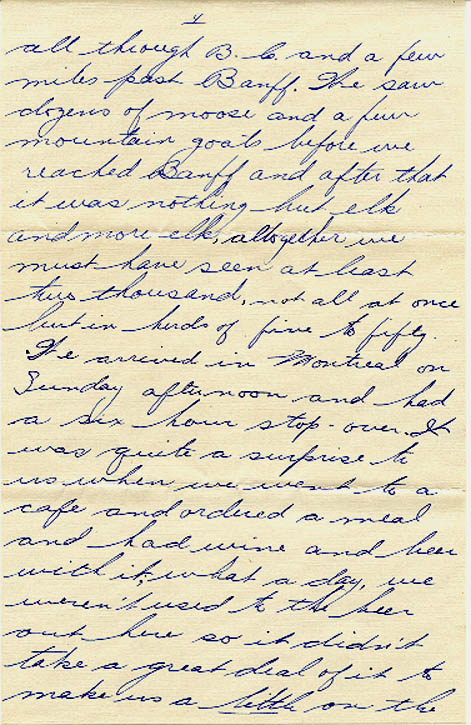 4
all through B. C. and a few
miles past Banff. We saw
dozens of moose and a few
mountain goats before we
reached Banff and after that
it was nothing but elk
and more elk, altogether we
must have seen at least
two thousand, not all at once
but in herds of five to fifty.
We arrived in Montreal on
Sunday afternoon and had
a six hour stop-over. It
was quite a surprise to
us when we went to a
cafe and ordered a meal
and had wine and beer
with it; what a day, we
weren't used to the beer
out here so it didn't
take a great deal of it to
make us a little on the